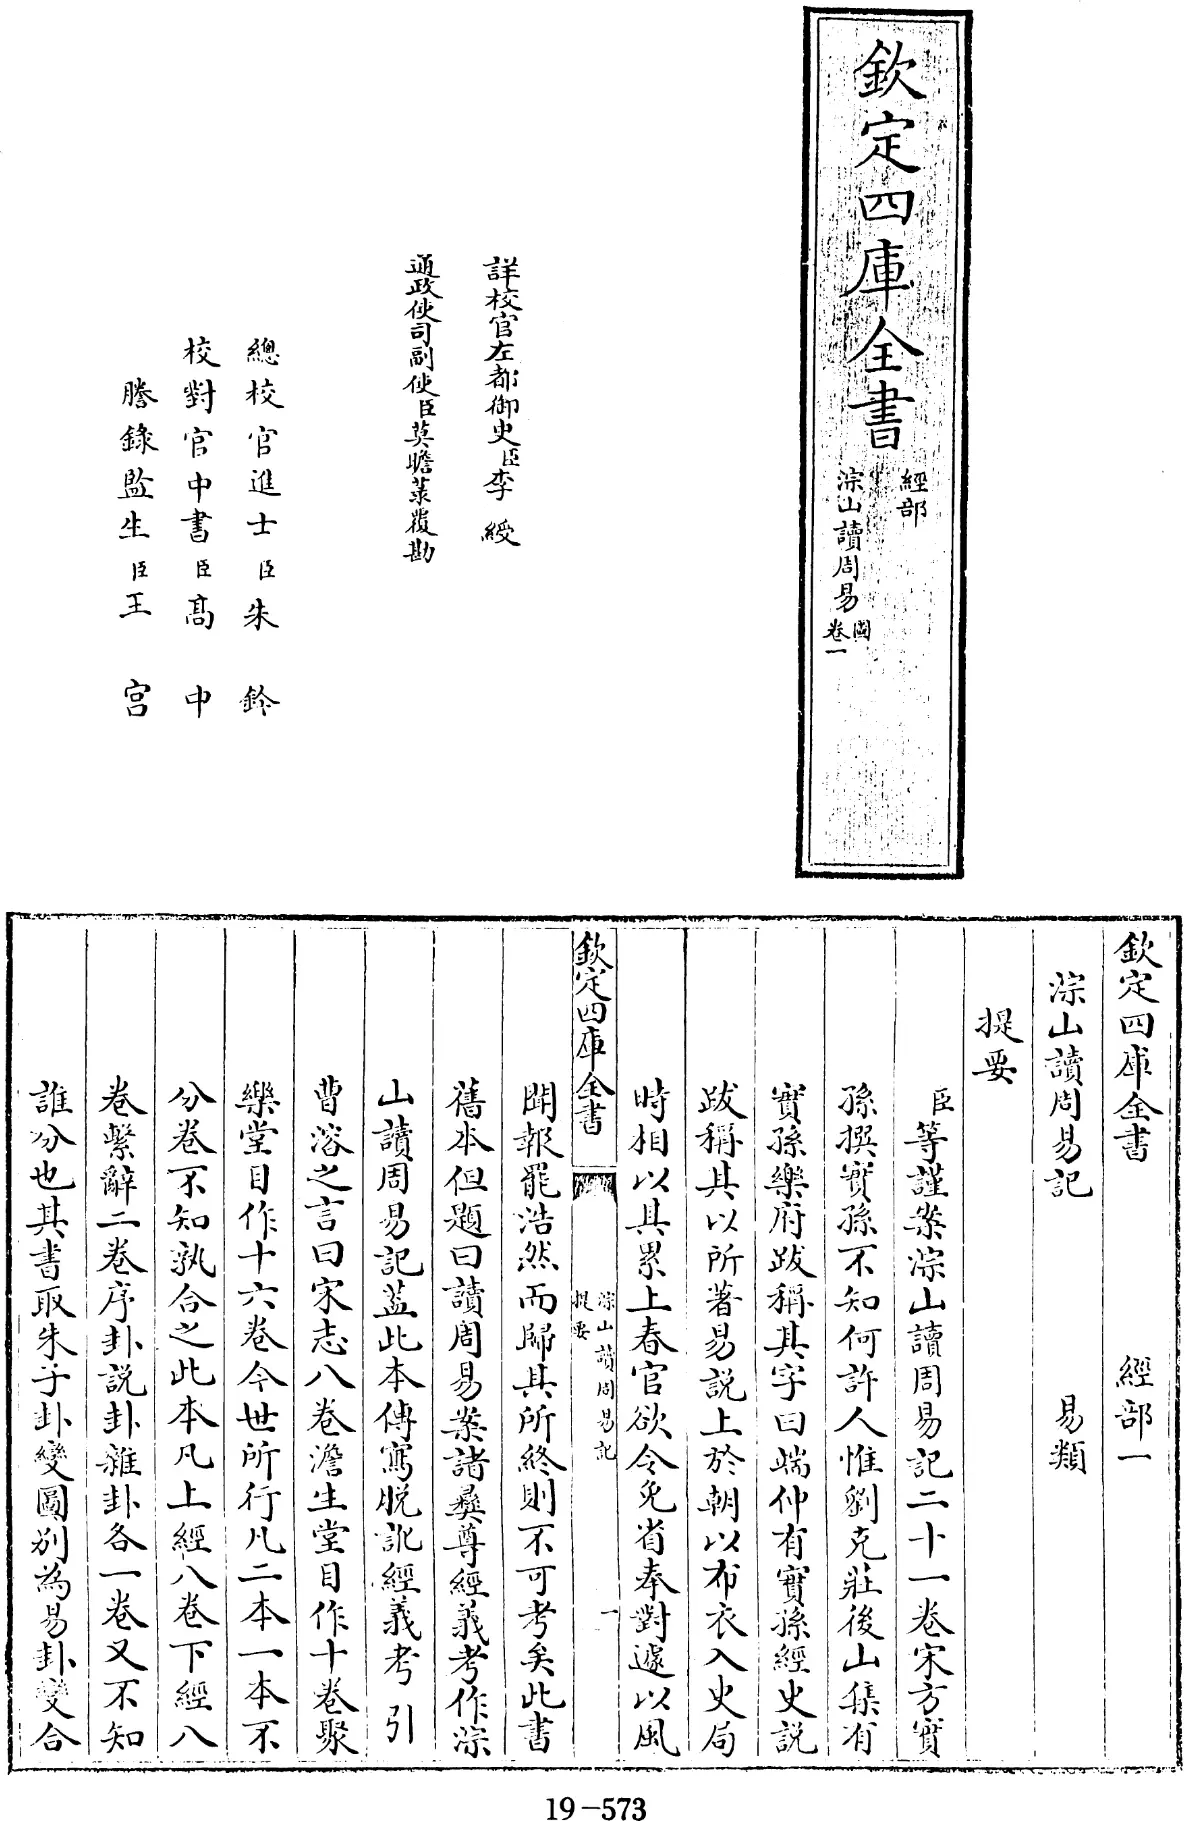 欽定四庫全書
經部
淙山讀周易圖卷一
詳校官左都御史臣李綬
通政使司副使臣莫瞻菉覆勘
總校官進士臣朱鈐
校對官中書臣高中
謄錄監生臣王宫
欽定四庫全書 經部一
淙山讀周易記 易類
提要
臣等謹案淙山讀周易記二十一卷宋方實
孫撰實孫不知何許人惟劉克莊後山集有
實孫樂府跋稱其字曰端仲有實孫經史説
跋稱其以所著易説上於朝以布衣入史局
時相以其累上春官欲令免省奉對遽以風
欽定四庫全書
淙山讀周易記
提要
一
聞報罷浩然而歸其所終則不可考矣此書
舊本但題曰讀周易案諸彛尊經義考作淙
山讀周易記葢此本傳寫脱訛經義考引
曹溶之言曰宋志八卷澹生堂目作十卷聚
樂堂目作十六卷今世所行凡二本一本不
分卷不知孰合之此本凡上經八卷下經八
卷繫辭二卷序卦説卦雜卦各一卷又不知
誰分也其書取朱子卦變圖别為易卦變合
19-573